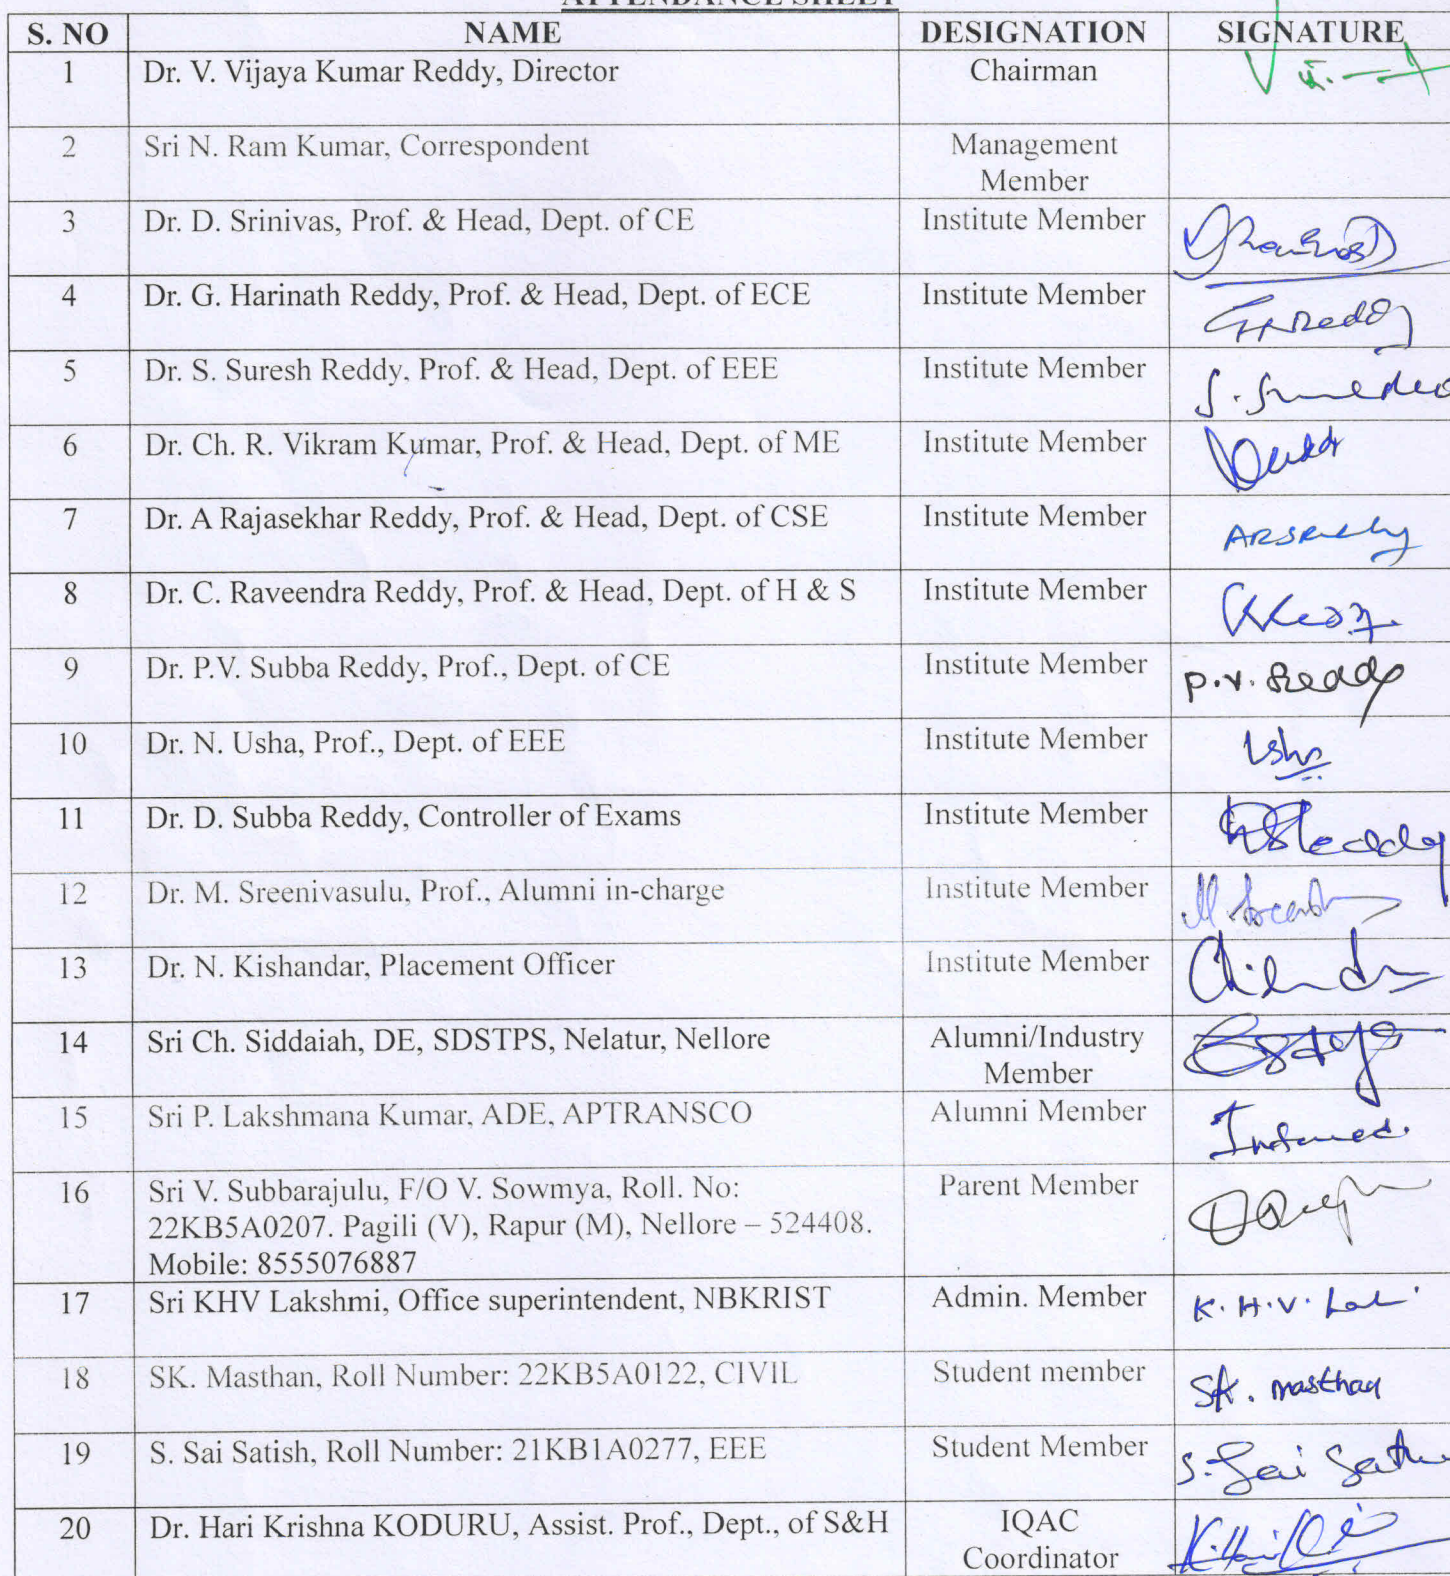 ATTENDANCE SHEET
S. NO NAME DESIGNATION SIGNATURE
1 Dr. V. Vijaya Kumar Reddy, Director Chairman
2 Sri N. Ram Kumar, Correspondent Management
Member
3 Dr. D. Srinivas, Prof. & Head, Dept. of CE Institute Member
4 Dr. G. Harinath Reddy, Prof. & Head, Dept. of ECE Institute Member GHReddy
5 Dr. S. Suresh Reddy, Prof. & Head, Dept. of EEE Institute Member
6 Dr. Ch. R. Vikram Kumar, Prof. & Head, Dept. of ME Institute Member
7 Dr. A Rajasekhar Reddy, Prof. & Head, Dept. of CSE Institute Member
8 Dr. C. Raveendra Reddy, Prof. & Head, Dept. of H & S Institute Member
9 Dr. P.V. Subba Reddy, Prof., Dept. of CE Institute Member P.V. Reddy
10 Dr. N. Usha, Prof., Dept. of EEE Institute Member Usha
11 Dr. D. Subba Reddy, Controller of Exams Institute Member DSReddy
12 Dr. M. Sreenivasulu, Prof., Alumni in-charge Institute Member
13 Dr. N. Kishandar, Placement Officer Institute Member
14 Sri Ch. Siddaiah, DE, SDSTPS, Nelatur, Nellore Alumni/Industry
Member
15 Sri P. Lakshmana Kumar, ADE, APTRANSCO Alumni Member
16 Sri V. Subbarajulu, F/O V. Sowmya, Roll. No: Parent Member
22KB5A0207. Pagili (V), Rapur (M), Nellore – 524408.
Mobile: 8555076887
17 Sri KHV Lakshmi, Office superintendent, NBKRIST Admin. Member K.H.V.
18 SK. Masthan, Roll Number: 22KB5A0122, CIVIL Student member SK. Masthan
19 S. Sai Satish, Roll Number: 21KB1A0277, EEE Student Member S. Sai
20 Dr. Hari Krishna KODURU, Assist. Prof., Dept., of S&H IQAC
Coordinator